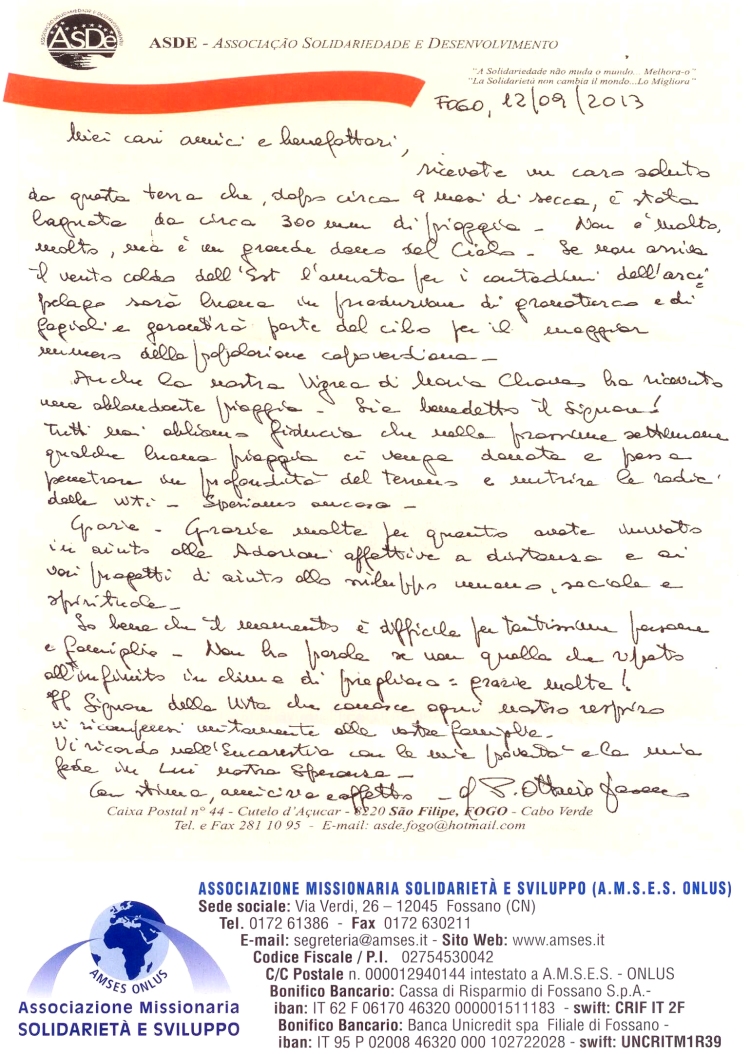 ASSOCIAÇÃO SOLIDARIEDADE E DESENVOLVIMENTO
ASDE
ASDE - ASSOCIAÇÃO SOLIDARIEDADE E DESENVOLVIMENTO
"A Solidariedade não muda o mundo... Melhora-o"
"La Solidarietà non cambia il mondo...Lo Migliora"
FOGO, 12/09/2013
Miei cari amici e benefattori,
ricevete un caro saluto
da questa terra che, dopo circa 9 mesi di secca, è stata
bagnata da circa 300 mm di pioggia - Non è molto,
molto, ma è un grande dono del Cielo - Se non arriva
il vento caldo dell'Est l'annata per i contadini dell'arci
pelago sarà buona in produzione di granoturco e di
fagioli e garantirà parte del cibo per il maggior
numero della popolazione capoverdiana -
Anche la nostra Vigna di Maria Chaves ha ricevuto
una abbondante pioggia - Sia benedetto il Signore!
Tutti noi abbiamo fiducia che nelle prossime settimane
qualche buona pioggia ci venga donata e possa
penetrare in profondità del terreno e nutrire le radici
delle viti - Speriamo ancora -
Grazie - Grazie molte per quanto avete inviato
in aiuto alle Adozioni affettive a distanza e ai
vari progetti di aiuto allo sviluppo umano, sociale e
spirituale -
So bene che il momento è difficile per tantissime persone
e famiglie - Non ho parola se non quella che ripeto
all'infinito in clima di preghiera = grazie molte!
Il Signore della Vita che conosce ogni nostro respiro
vi ricompensi unitamente alle vostre famiglie -
Vi ricordo nell'Eucarestia con la mia povertà e la mia
fede in Lui nostra Speranza -
Con stima, amicizia e affetto - P. Ottavio
Caixa Postal n° 44 - Cutelo d'Açucar - 8220 São Filipe, FOGO - Cabo Verde
Tel. e Fax 281 10 95 - E-mail: asde.fogo@hotmail.com
ASSOCIAZIONE MISSIONARIA SOLIDARIETÀ E SVILUPPO (A.M.S.E.S. ONLUS)
Sede sociale: Via Verdi, 26 – 12045 Fossano (CN)
Tel. 0172 61386 - Fax 0172 630211
E-mail: segreteria@amses.it - Sito Web: www.amses.it
Codice Fiscale / P.I. 02754530042
C/C Postale n. 000012940144 intestato a A.M.S.E.S. - ONLUS
Bonifico Bancario: Cassa di Risparmio di Fossano S.p.A.-
iban: IT 62 F 06170 46320 000001511183 - swift: CRIF IT 2F
Bonifico Bancario: Banca Unicredit spa Filiale di Fossano -
iban: IT 95 P 02008 46320 000 102722028 - swift: UNCRITM1R39
AMSES ONLUS
Associazione Missionaria
SOLIDARIETÀ E SVILUPPO